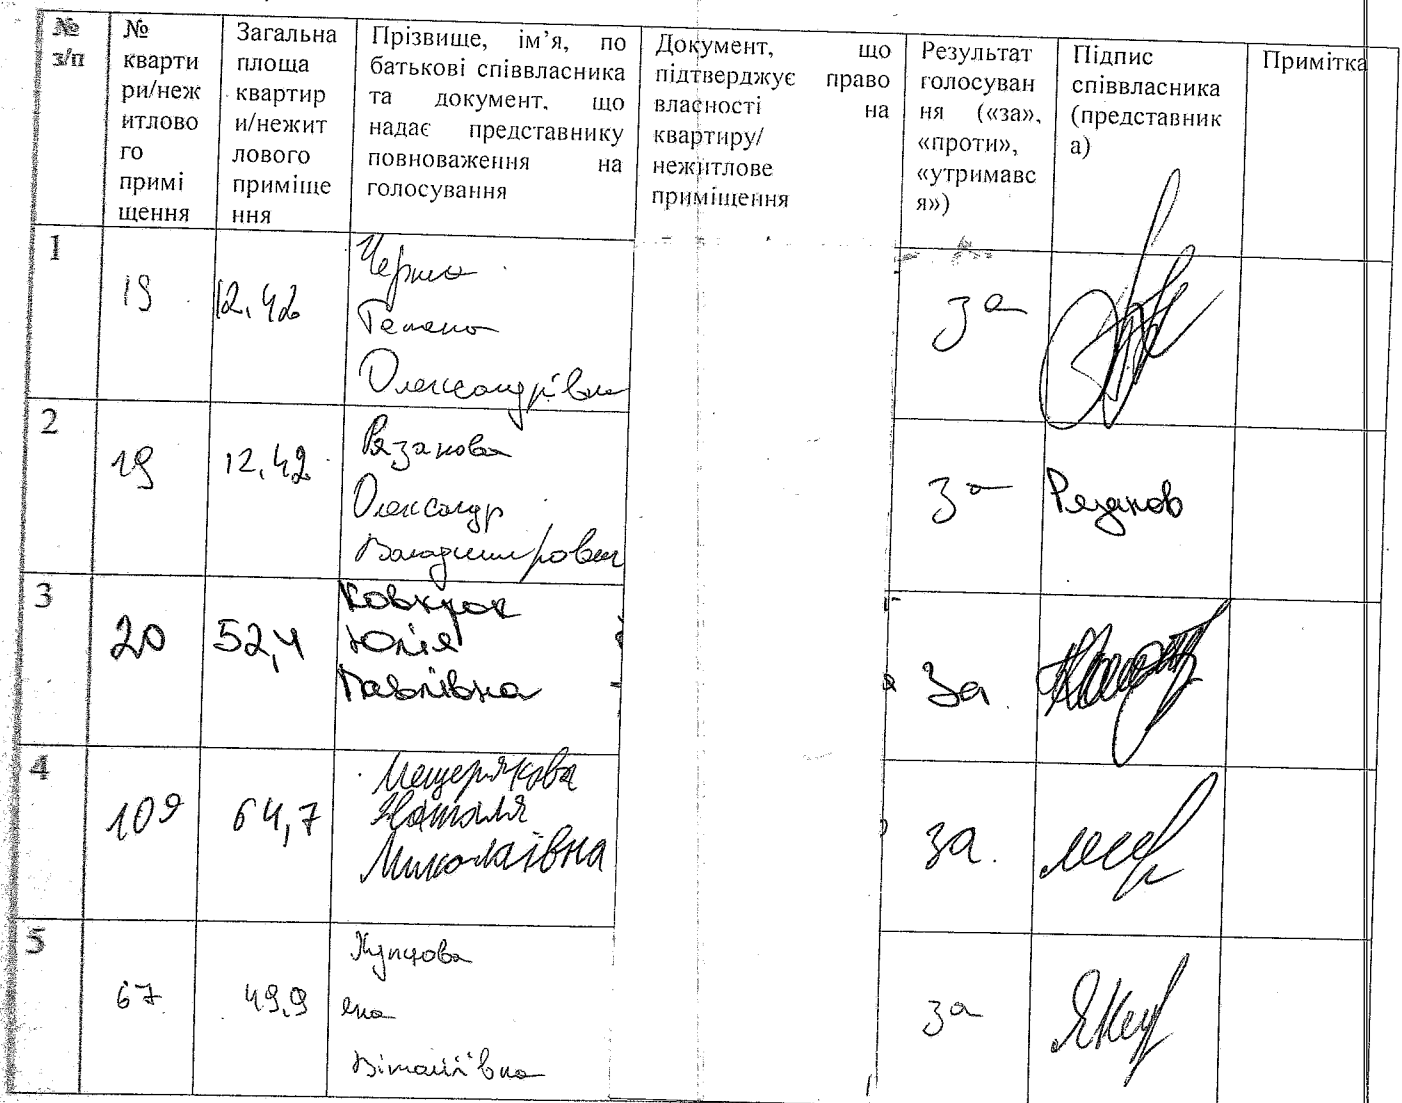 № з/п
№ кварти ри/неж итлово го примі щення
Загальна площа квартир и/нежит лового приміще ння
Прізвище, ім’я, по батькові співвласника та документ, що надає представнику повноваження на голосування
Документ, що підтверджує право власності на квартиру/ нежитлове приміщення
Результат голосуван ня («за», «проти», «утримавс я»)
Підпис співвласника (представник а)
Примітка
1
19
12,42
Олександрівна
за
2
19
12,42
Рязанова
Олександр
за
3
20
52,4
Ковкрок
Юлія
Павлівна
за
4
109
64,7
Мещерякова
Наталя
Миколаївна
за.
5
67
49,9
Купцова
Яна
Віталіївна
за